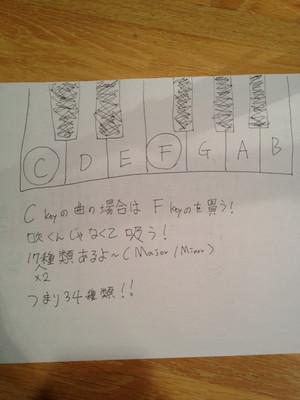 C D E F G A B
C keyの曲の場合は F keyのを買う!
吹くんじゃなくて 吸う!
17種類あるよ〜(Major/Minor)
×2
つまり34種類!!